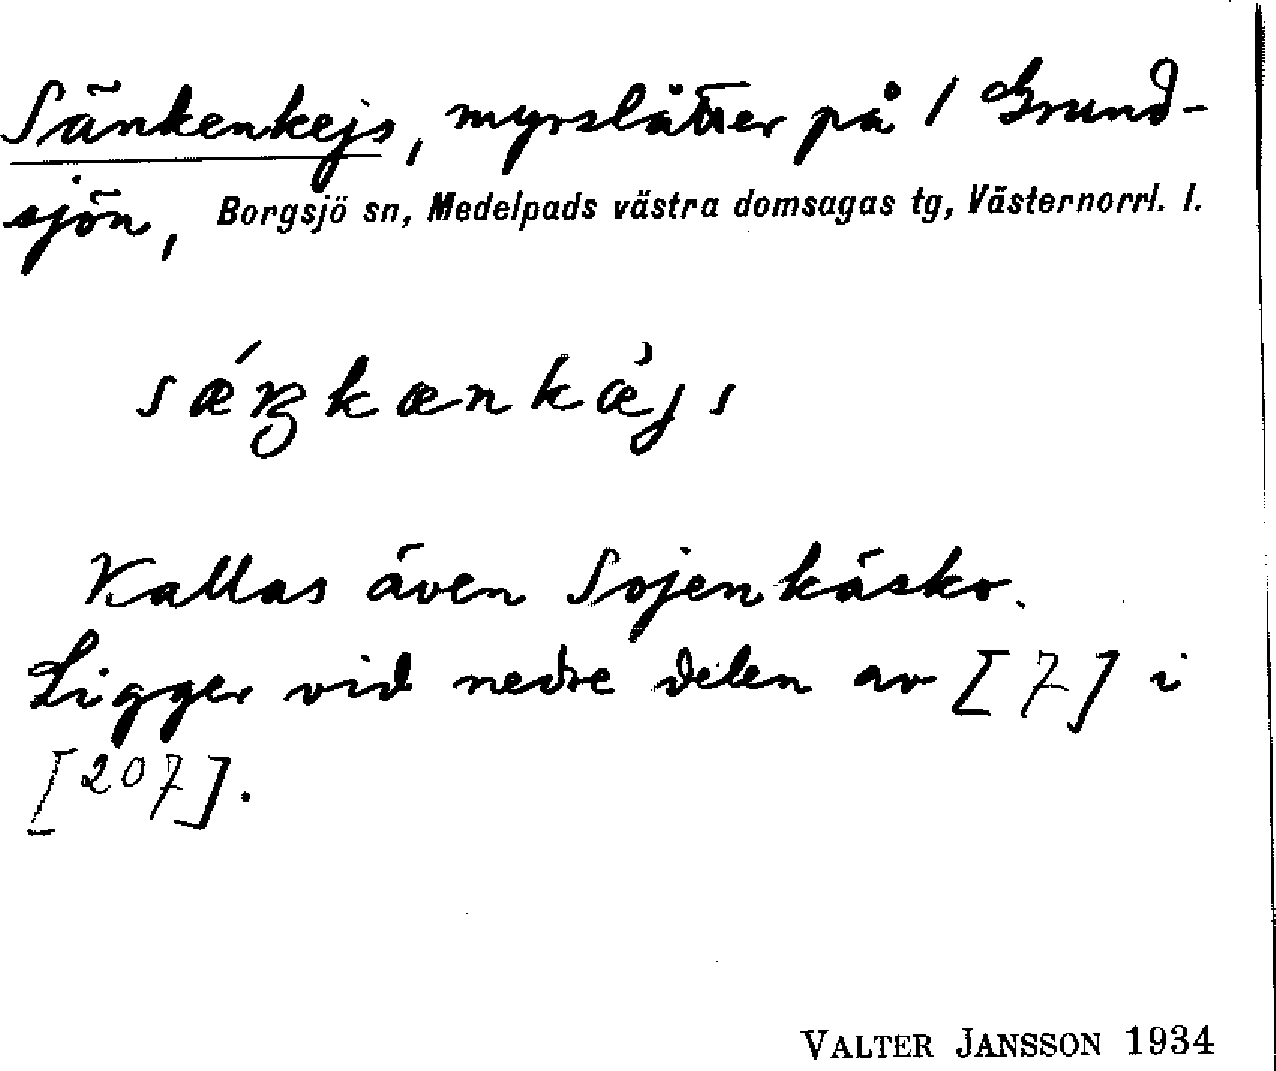 Sänkenkejs, myrslåtter på 1 Grund-
sjön, Borgsjö sn, Medelpads västra domsagas tg, Västernorrl. l.
sǽŋkænkæ̀js
Kallas även Sojenkäsko.
Ligger vid nedre delen av [7] i
[207].
VALTER JANSSON 1934